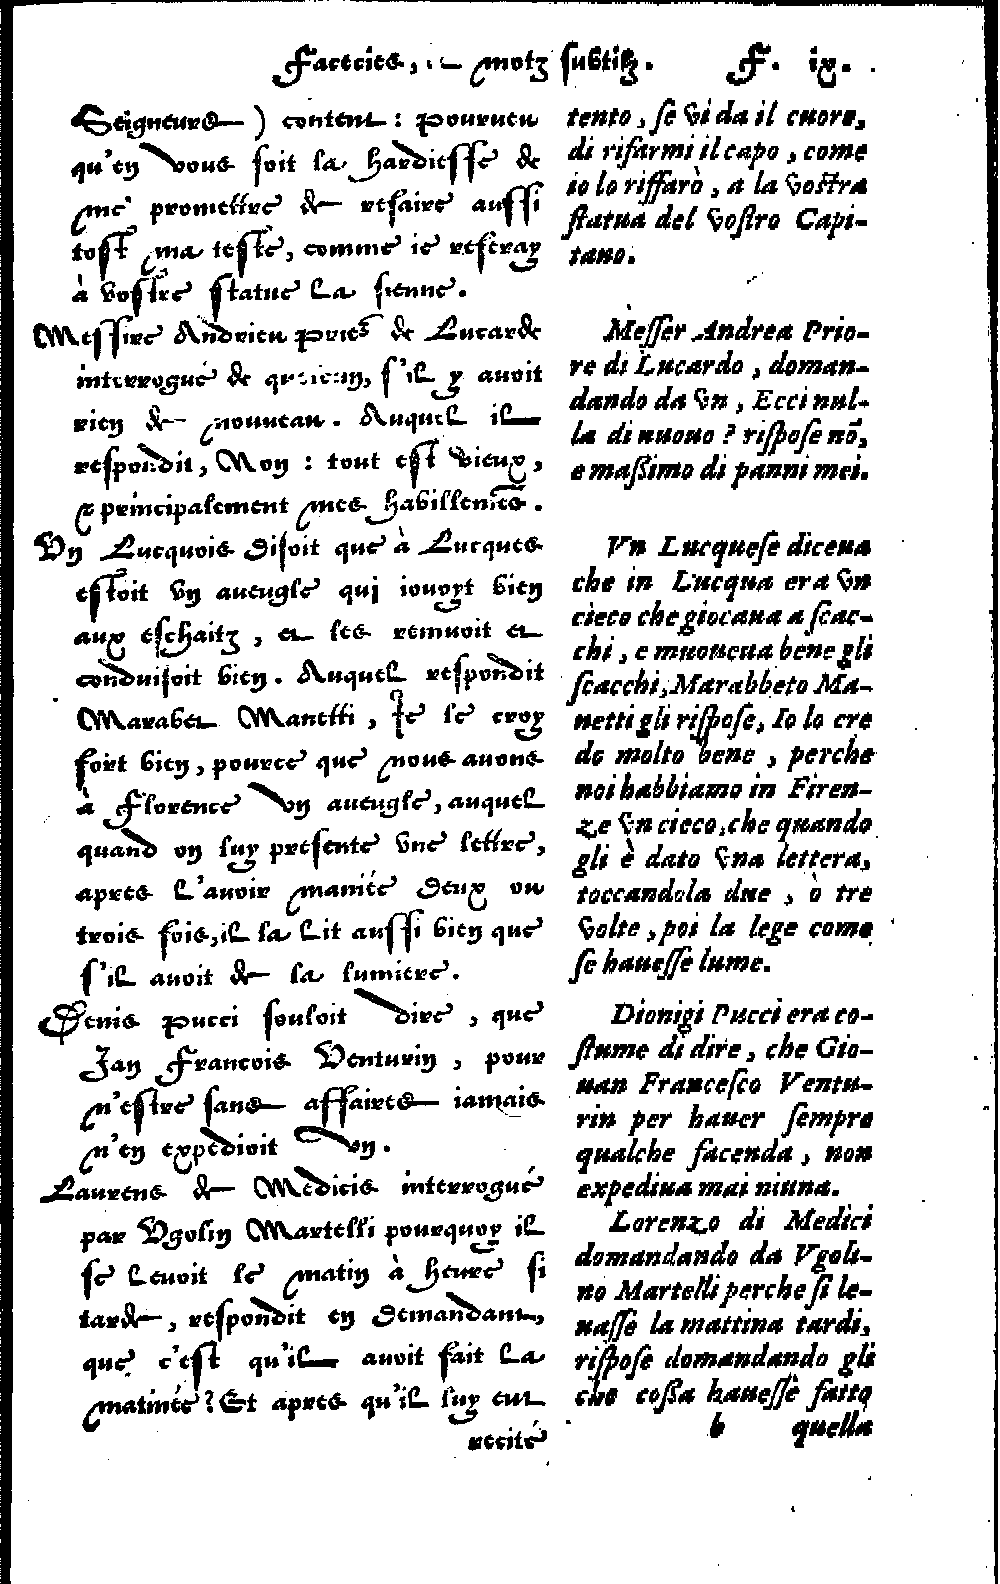 Facecies, et motz subtilz. F. ix.
Seigneurs ) content : pourueu
qu'en vous soit la hardiesse de
me promettre de refaire aussi
tost ma teste, comme ie referay
à vostre statue la sienne.
Messire Andrieu prieˢ de Lucarde
interrogué de s'il y auoit
rien de nouueau. Auquel il
respondit, Non : tout est vieux,
& principalement mes habillemẽs.
Vn Lucquois disoit que à Lucques
estoit vn aueugle qui iouoyt bien
aux eschaitz, et les remuoit et
conduisoit bien. Auquel respondit
Marabet Manetti, Je le croy
fort bien, pource que nous auons
à Florence vn aueugle, auquel
quand on luy presente vne lettre,
apres l'auoir maniée deux ou
trois fois, il la lit aussi bien que
s'il auoit de la lumiere.
Denis pucci souloit dire, que
Jan François Venturin, pour
n'estre sans affaires iamais
n'en expedioit vn.
Laurens de Medicis interrogué
par Vgolin Martelli pourquoy il
se leuoit le matin à heure si
tarde, respondit en demandant,
que c'est qu'il auoit fait la
matinée? Et apres qu'il luy eut
recité
tento, se vi da il cuore,
di rifarmi il capo, come
io lo riffarò, a la vostra
statua del vostro Capi-
tano.
Messer Andrea Prio-
re di Lucardo, doman-
dando da vn, Ecci nul-
la di nuouo? rispose nõ,
e maßimo di panni mei.
Vn Lucquese diceua
che in Lucqua era vn
cieco che giocaua a scac-
chi, e muoueua bene gli
scacchi, Marabbeto Ma-
netti gli rispose, Io lo cre
do molto bene, perche
noi habbiamo in Firen-
ze vn cieco, che quando
gli è dato vna lettera,
toccandola due, ò tre
volte, poi la lege come
se hauesse lume.
Dionigi Pucci era co-
stume di dire, che Gio-
uan Francesco Ventu-
rin per hauer sempre
qualche facenda, non
expediua mai niuna.
Lorenzo di Medici
domandando da Vgoli-
no Martelli perche si le-
uasse la mattina tardi,
rispose domandando gli
che coßa hauesse fatto
b quella